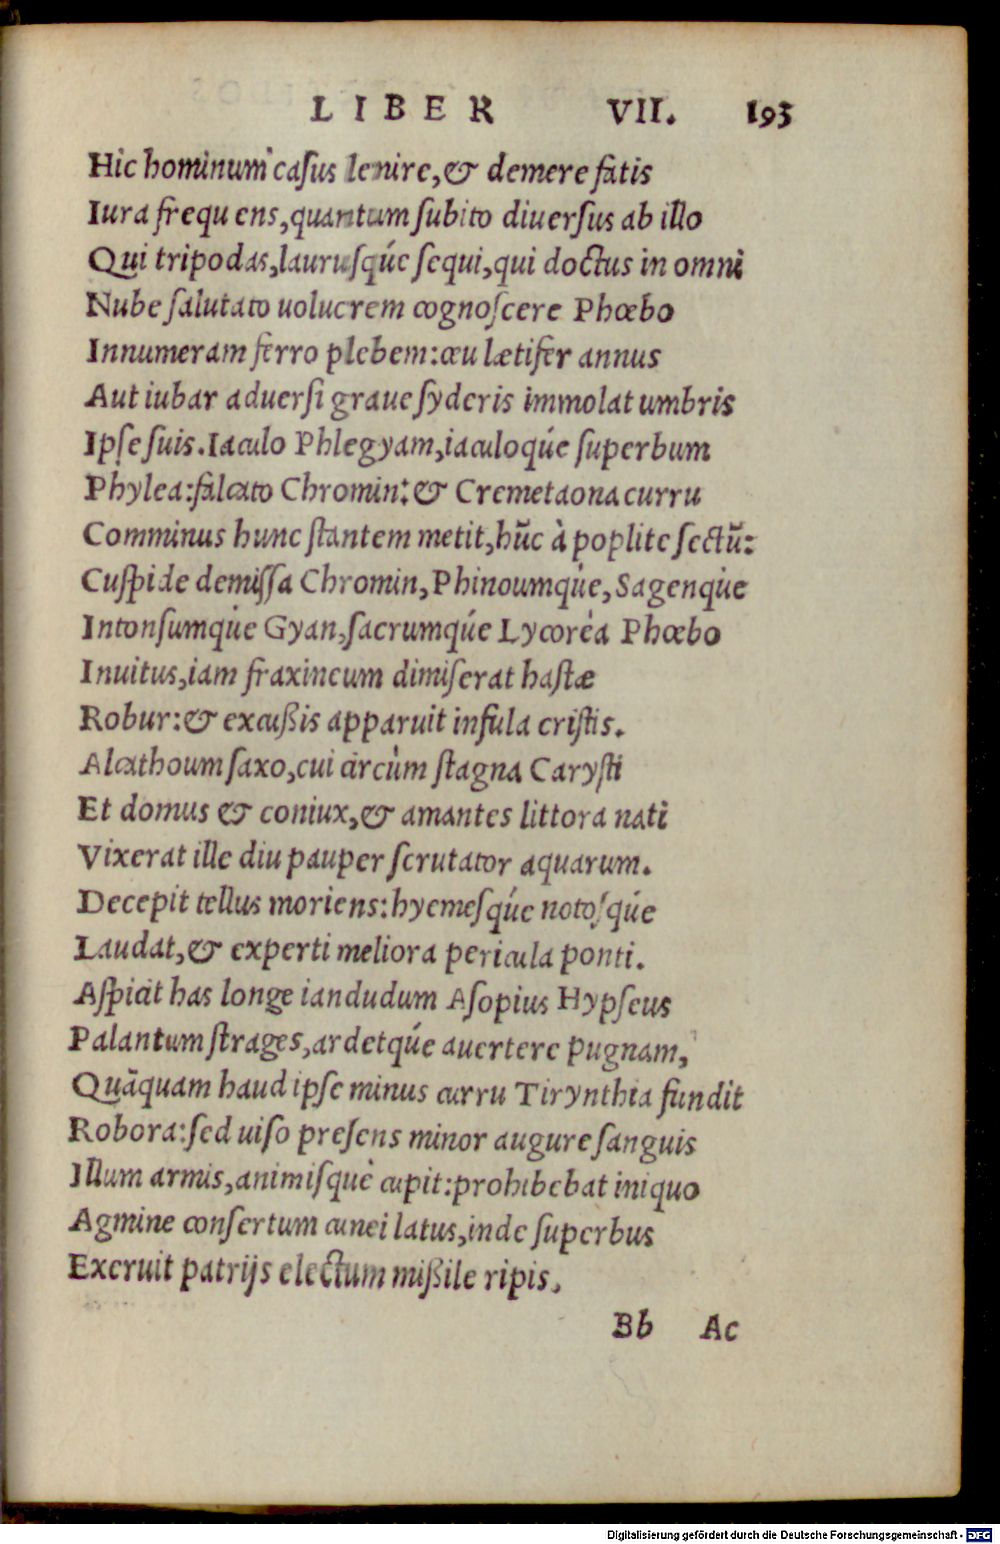 LIBER VII. 193
Hic hominum casus lenire, & demere fatis
Iura frequens, quantum subito diuersus ab illo
Qui tripodas, laurusqúe sequi, qui doctus in omni
Nube salutato uolucrem cognoscere Phœbo
Innumeram ferro plebem: ceu lætifer annus
Aut iubar aduersi graue syderis immolat umbris
Ipse suis. Iaculo Phlegyam, iaculoqúe superbum
Phylea: falcato Chromin: & Cremetaona curru
Comminus hunc stantem metit, hũc à poplite sectũ:
Cuspide demissa Chromin, Phinoumqùe, Sagenqùe
Intonsumqùe Gyan, sacrumqúe Lycorèa Phœbo
Inuitus, iam fraxineum dimiserat hastæ
Robur: & excußis apparuit infula cristis.
Alcathoum saxo, cui circùm stagna Carysti
Et domus & coniux, & amantes littora nati
Vixerat ille diu pauper scrutator aquarum.
Decepit tellus moriens: hyemesqúe notosqúe
Laudat, & experti meliora pericula ponti.
Aspicit has longe iandudum Asopius Hypseus
Palantum strages, ardetqúe auertere pugnam,
Quãquam haud ipse minus curru Tirynthia fundit
Robora: sed uiso presens minor augure sanguis
Illum armis, animisquè cupit: prohibebat iniquo
Agmine consertum cunei latus, inde superbus
Exeruit patrijs electum mißile ripis,
Bb Ac
Digitalisierung gefördert durch die Deutsche Forschungsgemeinschaft - DFG